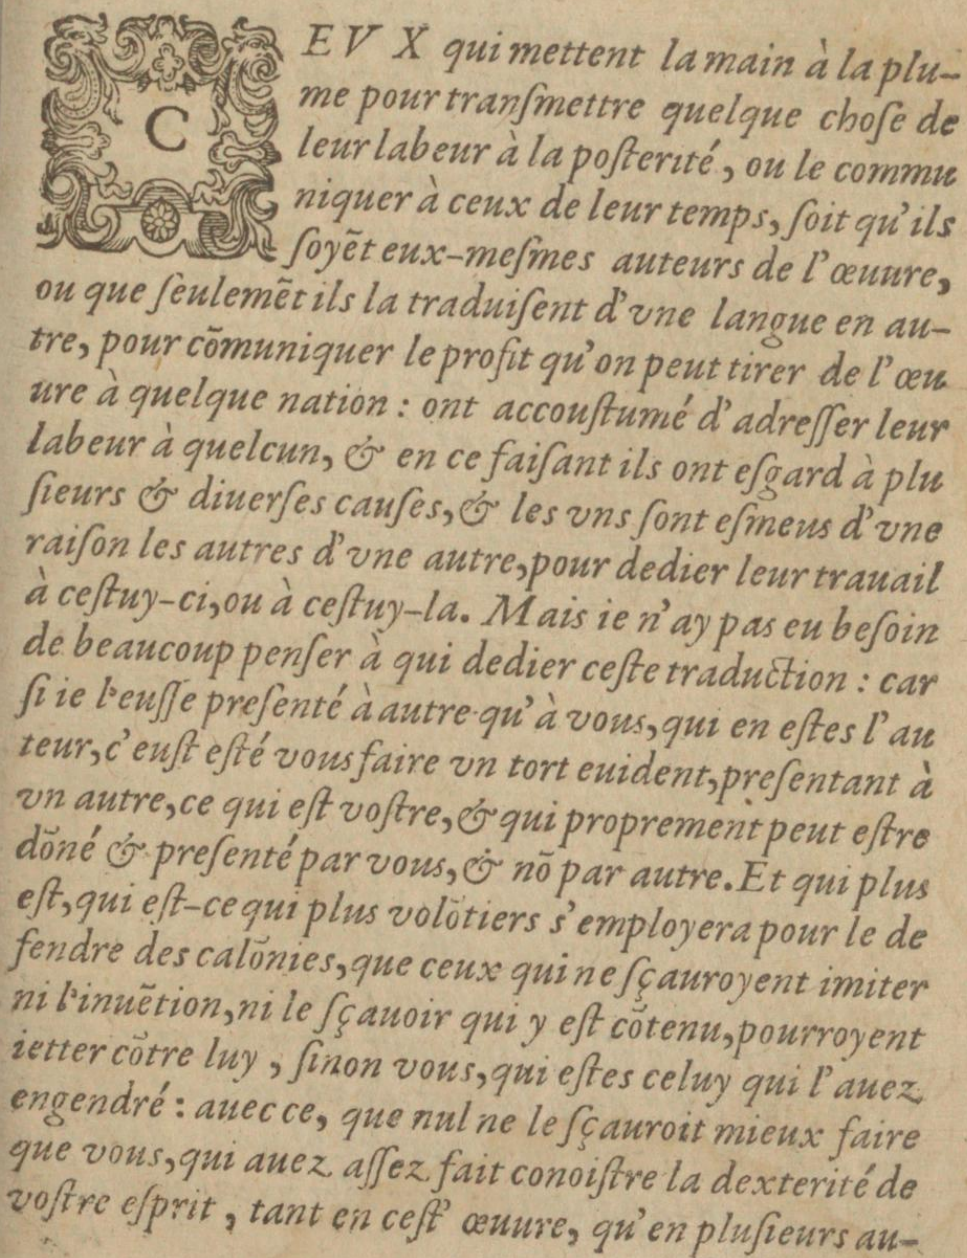 CEVX qui mettent la main à la plu-
me pour tranſmettre quelque choſe de
leur labeur à la poſterité, ou le commu
niquer à ceux de leur temps, ſoit qu'ils
ſoyẽt eux-meſmes auteurs de l'œuure,
ou que ſeulemẽt ils la traduiſent d'vne langue en au-
tre, pour cõmuniquer le profit qu'on peut tirer de l'œu
ure à quelque nation : ont accouſtumé d'adreſſer leur
labeur à quelcun, & en ce faiſant ils ont eſgard à plu
ſieurs & diuerſes cauſes, & les vns ſont eſmeus d'vne
raiſon les autres d'vne autre, pour dedier leur trauail
à ceſtuy-ci, ou à ceſtuy-la. Mais ie n'ay pas eu beſoin
de beaucoup penſer à qui dedier ceſte traduction : car
ſi ie l'euſſe preſenté à autre qu'à vous, qui en eſtes l'au
teur, c'euſt eſté vous faire vn tort euident, preſentant à
vn autre, ce qui eſt voſtre, & qui proprement peut eſtre
dõné & preſenté par vous, & nõ par autre. Et qui plus
eſt, qui eſt-ce qui plus volõtiers s'employera pour le de
fendre des calõnies, que ceux qui ne ſçauroyent imiter
ni l'inuẽtion, ni le ſçauoir qui y eſt cõtenu, pourroyent
ietter cõtre luy, ſinon vous, qui eſtes celuy qui l'auez
engendré : auec ce, que nul ne le ſçauroit mieux faire
que vous, qui auez aſſez fait conoiſtre la dexterité de
voſtre eſprit, tant en ceſt' œuure, qu'en pluſieurs au-